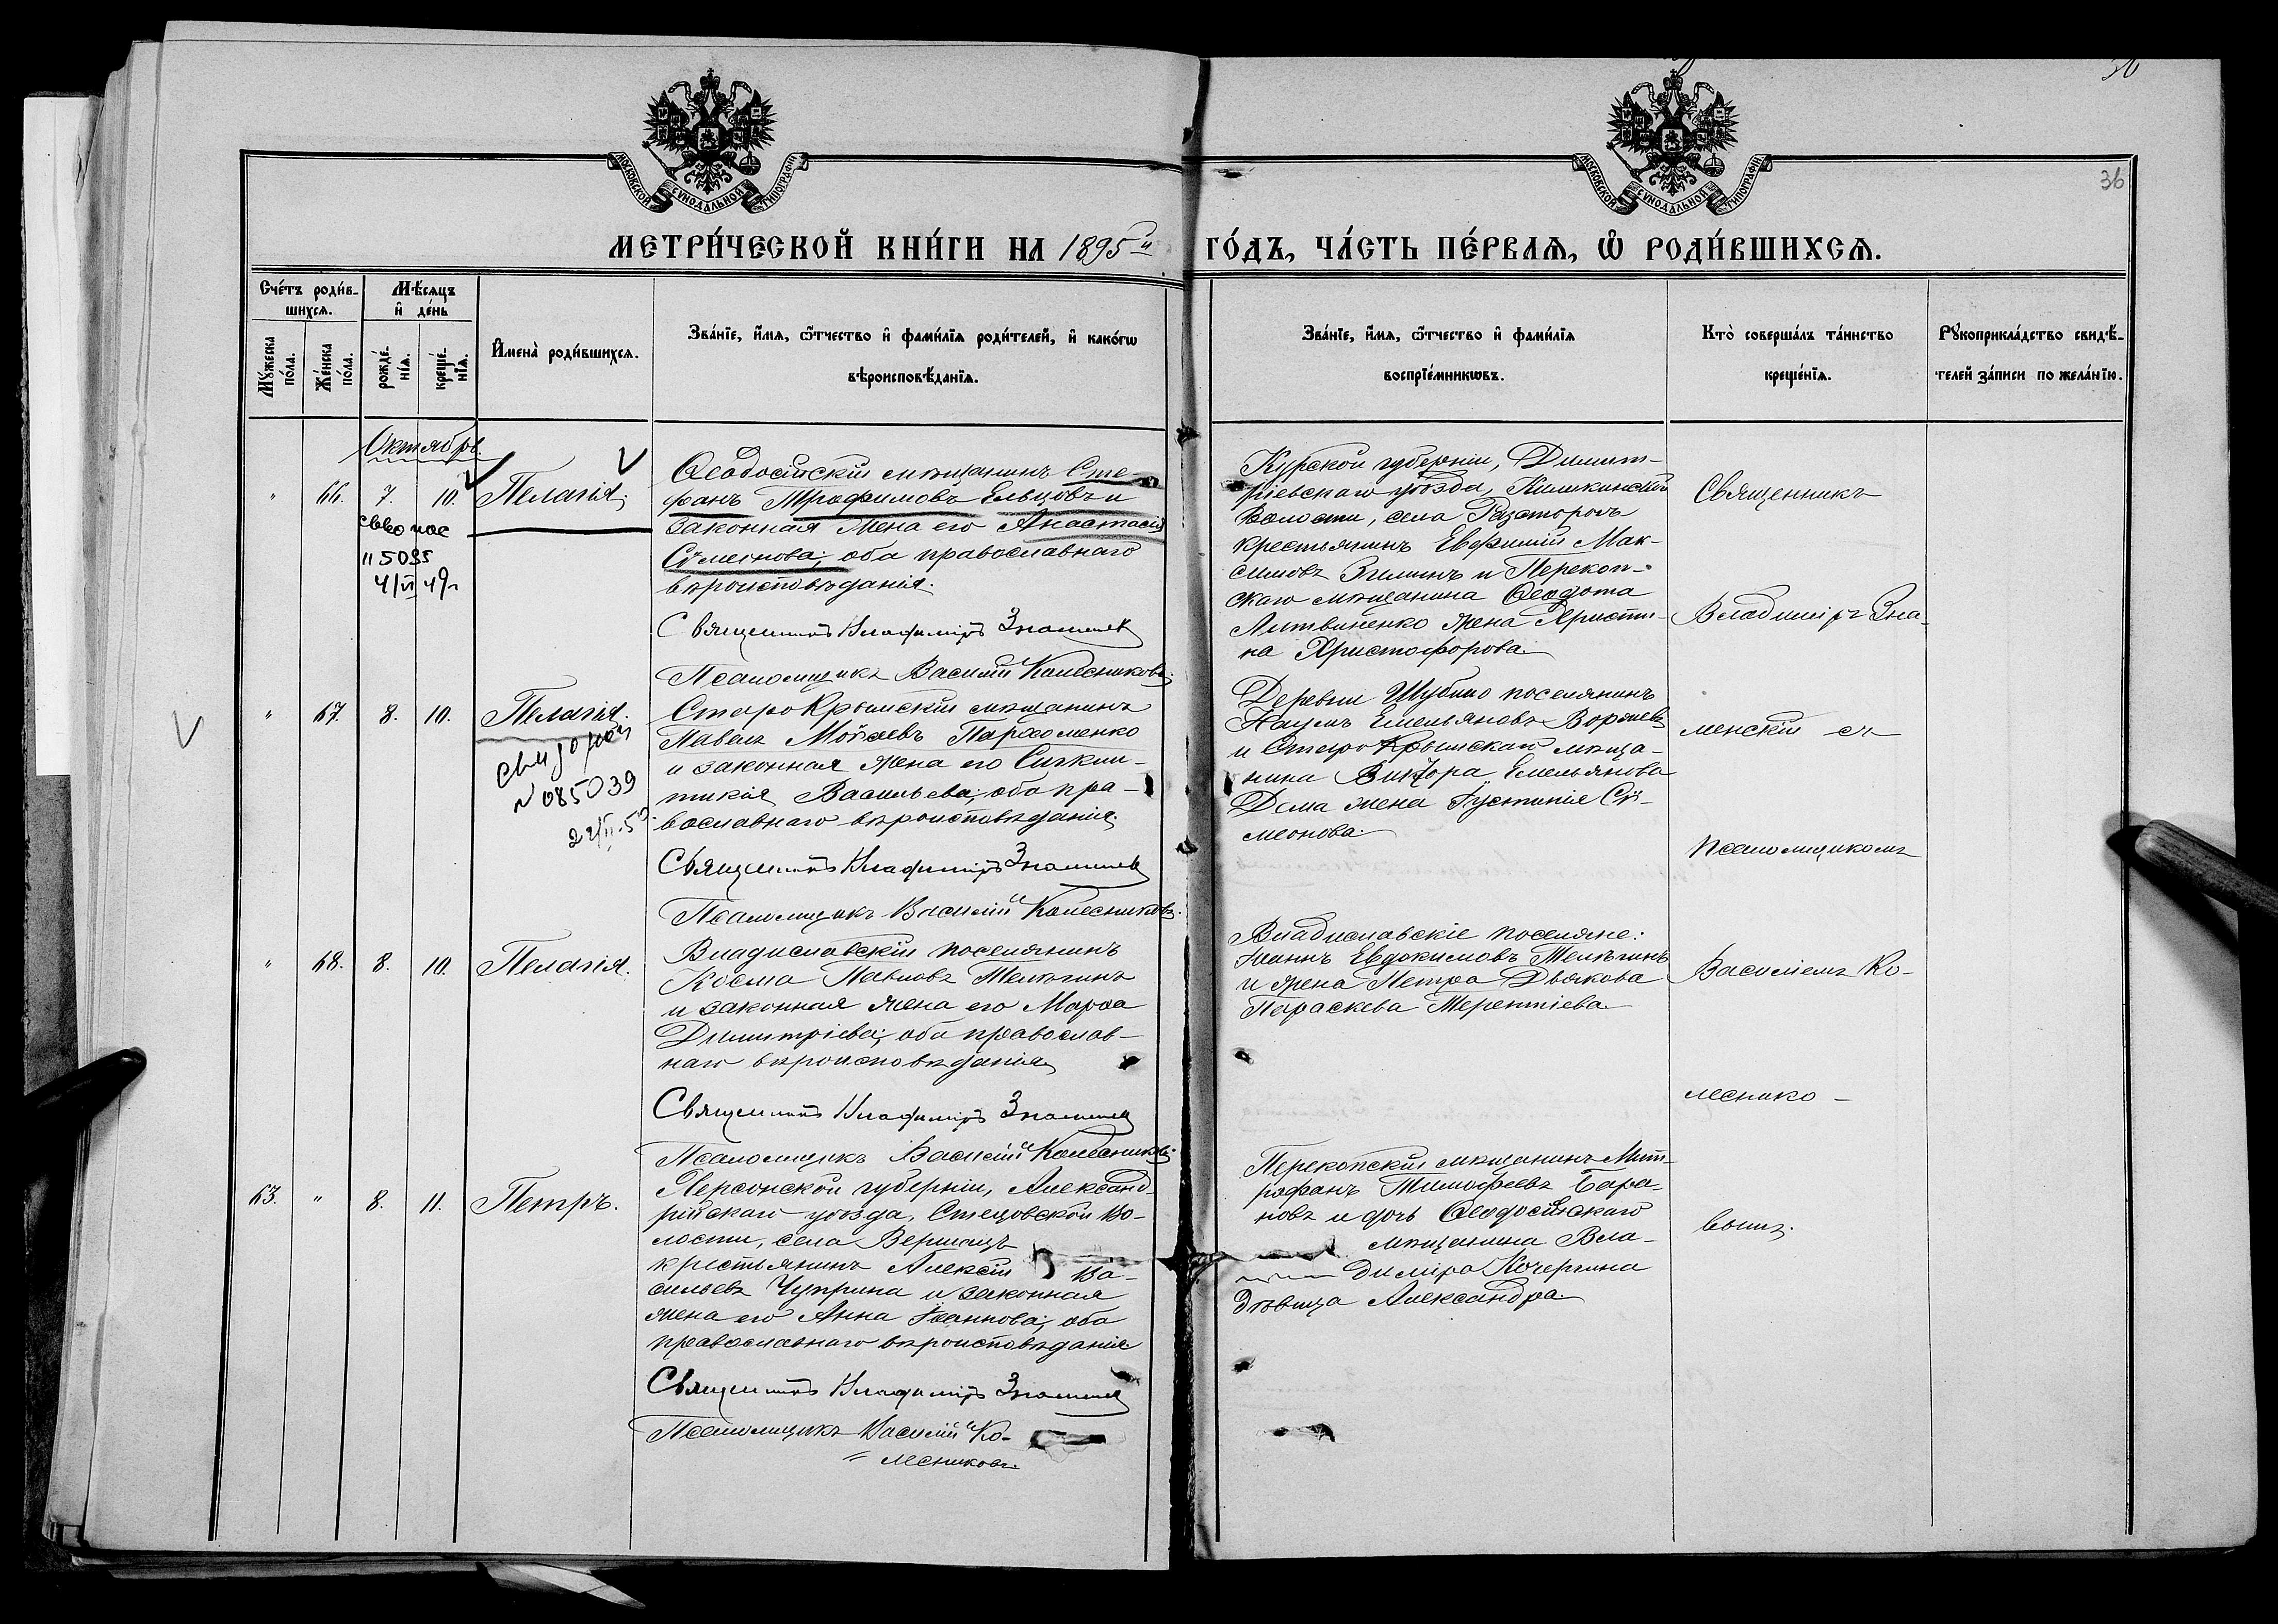 36
МОСКОВСКОЙ СѴНОДАЛЬНОЙ ТИПОГРАФІИ
МОСКОВСКОЙ СѴНОДАЛЬНОЙ ТИПОГРАФІИ
36
МЕТРИ́ЧЕСКОЙ КНИ́ГИ НА 1895й ГО́ДЪ, ЧА́СТЬ ПЕ́РВАѦ, Ѡ҆ РОДИ́ВШИХСѦ.
Сче́тъ роди́в-
шихсѧ.
Мꙋ́жеска по́ла.
Же́нска по́ла.
Мѣ́сѧцъ
и҆ де́нь
рожде́-
нїѧ.
креще́-
нїѧ.
И҆мена̀ роди́вшихсѧ.
Зва́нїе, и҆́мѧ, ѻ҆́тчество и҆ фами́лїѧ роди́телей, и҆ како́гѡ
вѣроисповѣ́данїѧ.
Зва́нїе, и҆́мѧ, ѻ҆́тчество и҆ фами́лїѧ
воспрїе́мникѡвъ.
Кто̀ соверша́лъ та́инство
креще́нїѧ.
Рꙋкоприкла́дство свидѣ́-
телей за́писи по жела́нїю.
Октябрь.
" 66. 7. 10. Пелагія;
Ѳеодосійскій мѣщанинъ Сте-
фанъ Трофимовъ Ельцовъ и
законная жена его Анастасія
Сѵмеонова; оба православнаго
вѣроисповѣданія.
Священникъ Владиміръ Знаменскій
Псаломщикъ Василій Колесниковъ.
115035
4/VI 49г
Курской губерніи, Димит-
ріевскаго уѣзда,
Волости, села
крестьянинъ Евфимій Мак-
симовъ Зиминъ и Перекоп-
скаго мѣщанина Ѳеодота
Литвиненко жена Христи-
на Христофорова.
Священникъ
Владиміръ Зна-
менскій съ
псаломщикомъ
Василіемъ Ко-
леснико-
вымъ.
" 67. 8. 10. Пелагія.
N 085039
СтароКрымскій мѣщанинъ
Павелъ Мойсеевъ Пархоменко
и законная жена его Сигкли-
тикія Васильева; оба пра-
вославнаго вѣроисповѣданія.
Священникъ Владиміръ Знаменскій
Псаломщикъ Василій Колесниковъ.
Деревни Шубино поселянинъ
Наумъ Емельяновъ
и СтароКрымскаго мѣща-
нина Виктора Емельянова
Дема жена Іустинія Сѵ-
меонова.
" 68. 8. 10. Пелагія.
Владиславскій поселянинъ
Косма Павловъ Телегинъ
и законная жена его Марѳа
Димитріева; оба православ-
наго вѣроисповѣданія
Священникъ Владиміръ Знаменскій
Псаломщикъ Василій Колесниковъ.
Владиславскіе поселяне:
Іоаннъ Евдокимовъ Телегинъ
и жена Петра Дьякова
Параскева Терентіева.
63. " 8. 11. Петръ.
Херсонской губерніи, Александ-
рійскаго уѣзда, Стецовской во-
лости, села Вершацъ
крестьянинъ Алексій Ва-
сильевъ Чуприна и законная
жена его Анна Іоаннова; оба
православнаго вѣроисповѣданія
Священникъ Владиміръ Знаменскій
Псаломщикъ Василій Ко-
лесниковъ.
Перекопскій мѣщанинъ Мит-
рофанъ Тимофеевъ Бара-
новъ и дочь Ѳеодосійскаго
мѣщанина Вла-
диміра Кочергина
дѣвица Александра.